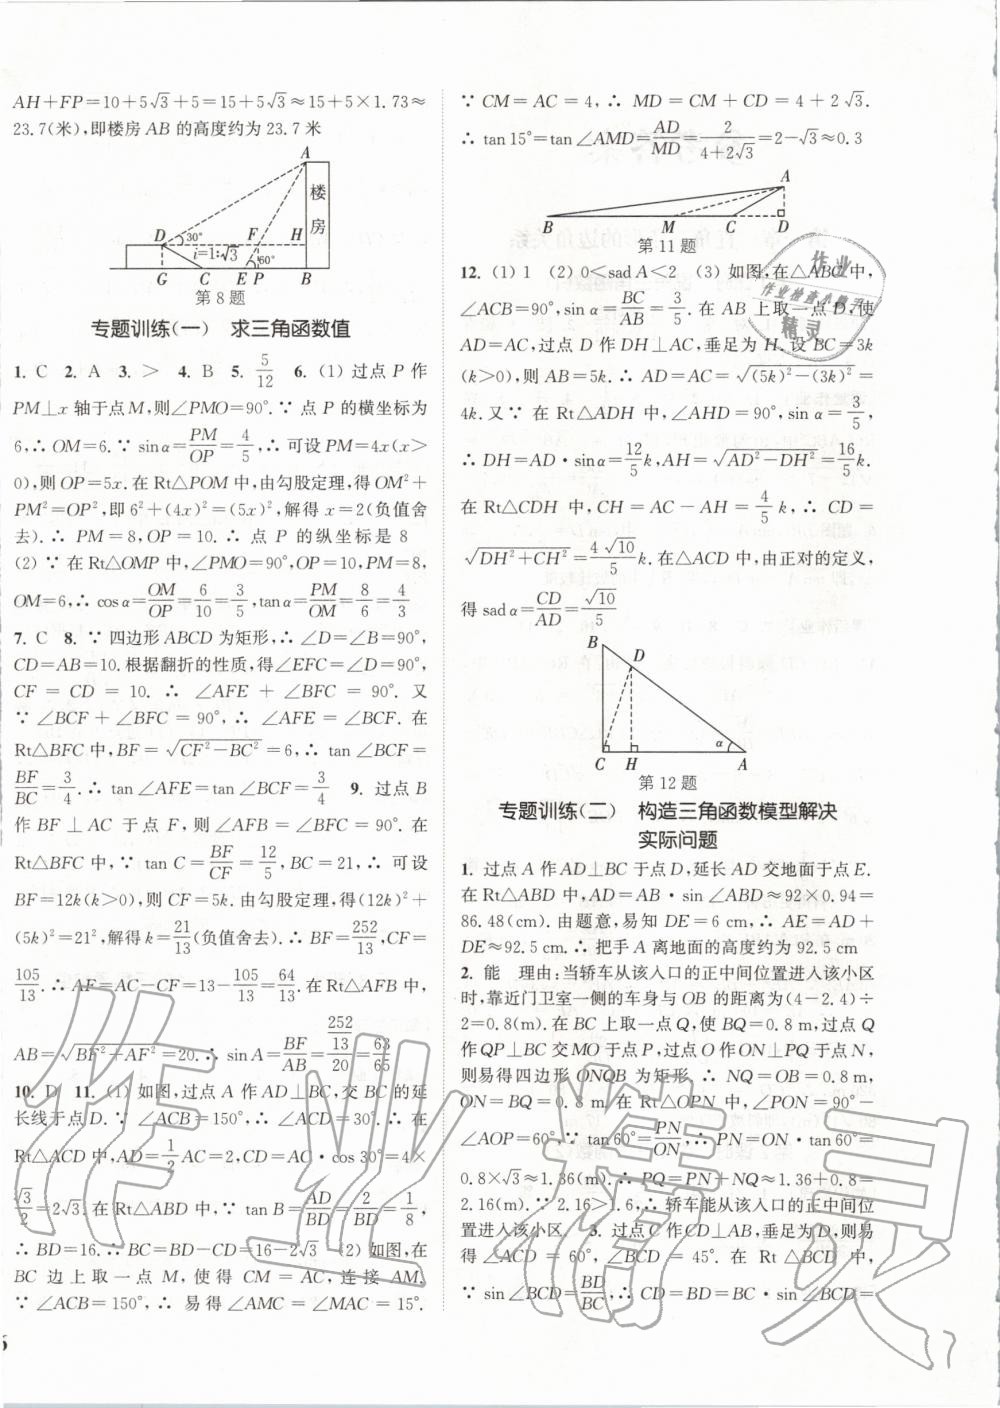 AH+FP=10+5√3+5=15+5√3≈15+5×1.73≈
23.7(米),即楼房 AB 的高度约为 23.7 米
A
楼
房
D 30° F H
i=1:√3 60°
G C E P B
第 8 题
专题训练(一) 求三角函数值
1. C 2. A 3. > 4. B 5. 5/12 6. (1) 过点 P 作
PM⊥x 轴于点 M,则∠PMO=90°.∵ 点 P 的横坐标为
6,∴ OM=6.∵ sinα=PM/OP=4/5,∴ 可设 PM=4x(x>
0),则 OP=5x.在 Rt△POM 中,由勾股定理,得 OM²+
PM²=OP²,即 6²+(4x)²=(5x)²,解得 x=2(负值舍
去).∴ PM=8,OP=10.∴ 点 P 的纵坐标是 8
(2) ∵ 在 Rt△OMP 中,∠PMO=90°,OP=10,PM=8,
OM=6,∴ cosα=OM/OP=6/10=3/5,tanα=PM/OM=8/6=4/3
7. C 8. ∵ 四边形 ABCD 为矩形,∴ ∠D=∠B=90°,
CD=AB=10.根据翻折的性质,得∠EFC=∠D=90°,
CF = CD = 10. ∴ ∠AFE + ∠BFC = 90°. 又
∵ ∠BCF + ∠BFC = 90°,∴ ∠AFE = ∠BCF. 在
Rt△BFC 中,BF=√(CF²-BC²)=6,∴ tan∠BCF=
BF/BC=3/4.∴ tan∠AFE=tan∠BCF=3/4 9. 过点 B
作 BF⊥AC 于点 F,则∠AFB=∠BFC=90°.在
Rt△BFC 中,∵ tan C=BF/CF=12/5,BC=21,∴ 可设
BF=12k(k>0),则 CF=5k.由勾股定理,得(12k)²+
(5k)²=21²,解得 k=21/13(负值舍去).∴ BF=252/13,CF=
105/13.∴ AF=AC-CF=13-105/13=64/13.在 Rt△AFB 中,
AB=√(BF²+AF²)=20.∴ sin A=BF/AB=(252/13)/20=63/65
10. D 11. (1) 如图,过点 A 作 AD⊥BC,交 BC 的延
长线于点 D.∵ ∠ACB=150°,∴ ∠ACD=30°.∴ 在
Rt△ACD 中,AD=1/2AC=2,CD=AC·cos 30°=4×
√3/2=2√3.在 Rt△ABD 中,∵ tan B=AD/BD=2/BD=1/8,
∴ BD=16.∴ BC=BD-CD=16-2√3 (2) 如图,在
BC 边上取一点 M,使得 CM = AC,连接 AM.
∵ ∠ACB=150°,∴ 易得∠AMC=∠MAC=15°.
∵ CM = AC = 4,∴ MD = CM + CD = 4 + 2√3.
∴ tan 15°=tan∠AMD=AD/MD=2/(4+2√3)=2-√3≈0.3
A
B M C D
第 11 题
12. (1) 1 (2) 0<sad A<2 (3) 如图,在△ABC 中,
∠ACB=90°,sinα=BC/AB=3/5.在 AB 上取一点 D,使
AD=AC,过点 D 作 DH⊥AC,垂足为 H.设 BC=3k
(k>0),则 AB=5k.∴ AD=AC=√((5k)²-(3k)²)=
4k.又∵ 在 Rt△ADH 中,∠AHD=90°,sinα=3/5,
∴ DH=AD·sinα=12/5k,AH=√(AD²-DH²)=16/5k.
在 Rt△CDH 中,CH=AC-AH=4/5k,∴ CD=
√(DH²+CH²)=4√10/5k.在△ACD 中,由正对的定义,
得 sadα=CD/AD=√10/5
B
D
α
C H A
第 12 题
专题训练(二) 构造三角函数模型解决
实际问题
1. 过点 A 作 AD⊥BC 于点 D,延长 AD 交地面于点 E.
在 Rt△ABD 中,AD=AB·sin∠ABD≈92×0.94=
86.48(cm).由题意,易知 DE=6 cm,∴ AE=AD+
DE≈92.5 cm.∴ 把手 A 离地面的高度约为 92.5 cm
2. 能 理由:当轿车从该入口的正中间位置进入该小区
时,靠近门卫室一侧的车身与 OB 的距离为(4-2.4)÷
2=0.8(m).在 BC 上取一点 Q,使 BQ=0.8 m,过点 Q
作 QP⊥BC 交 MO 于点 P,过点 O 作 ON⊥PQ 于点 N,
则易得四边形 ONQB 为矩形.∴ NQ=OB=0.8 m,
ON=BQ=0.8 m.在 Rt△OPN 中,∠PON=90°-
∠AOP=60°,∵ tan 60°=PN/ON,∴ PN=ON·tan 60°=
0.8×√3≈1.36(m).∴ PQ=PN+NQ≈1.36+0.8=
2.16(m).∵ 2.16>1.6,∴ 轿车能从该入口的正中间位
置进入该小区 3. 过点 C 作 CD⊥AB,垂足为 D,则易
得∠ACD=60°,∠BCD=45°.在 Rt△BCD 中,
∵ sin∠BCD=BD/BC,∴ BD=BC·sin∠BCD=
作业
作业检查小助手
精灵
作业精灵